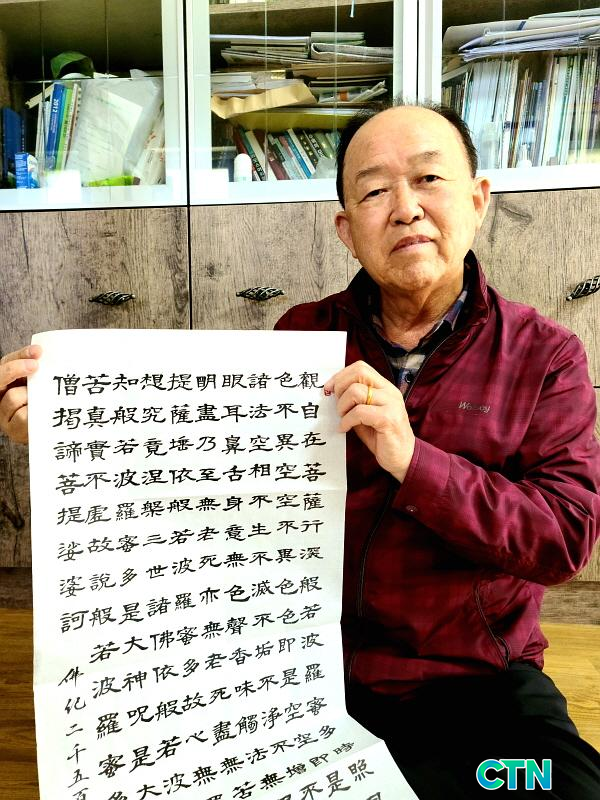 觀自在菩薩行深般若波羅蜜多時照
色不異空空不異色色即是空空即是
諸法空相不生不滅不垢不淨不增不
眼耳鼻舌身意無色聲香味觸法無
明盡乃至無老死亦無老死盡無
提薩埵依般若波羅蜜多故心無
想究竟涅槃三世諸佛依般若波
知般若波羅蜜多是大神呪是大
苦真實不虛故說般若波羅蜜多
僧揭諦菩提娑婆訶
佛紀二千五百
Wolsey
CTN